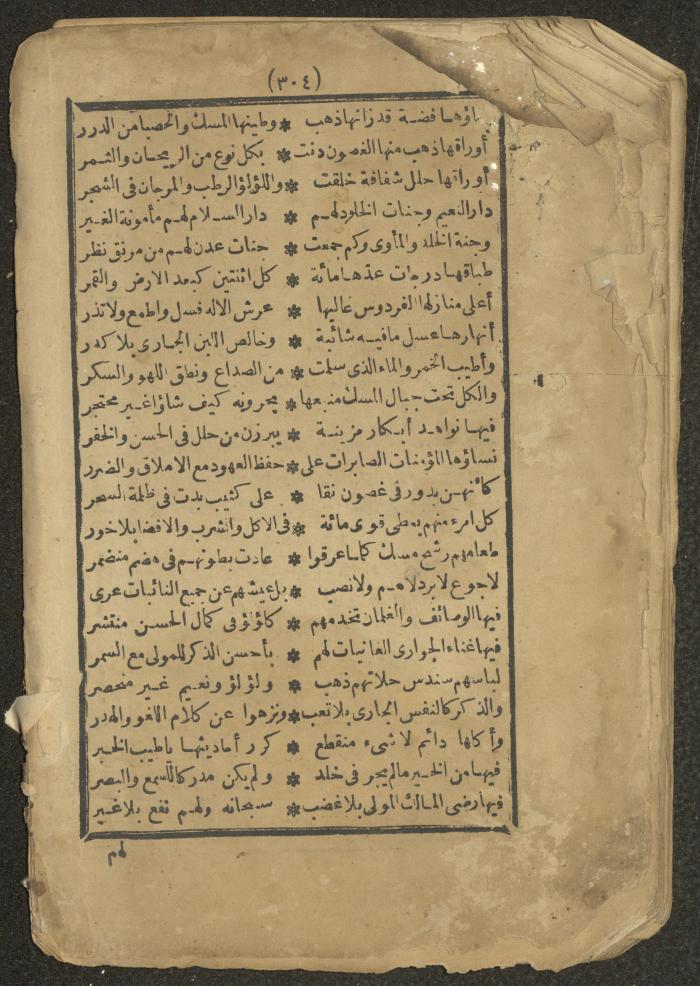 (٣٠٤)
ـاؤهـا فضـة قد زانها ذهب * وطينها المسك والحصبا من الدرر
أوراقها ذهب منها الغصون دنت * بكل نوع من الريحـان والثـمر
أوراقها حلل شفافة خلقت * واللؤلؤ الرطب والمرجان فى الشجر
دار النعيم وجنات الخلود لهـم * دار السـلام لهـم مأمونة الغـير
وجنة الخلد والمأوى وكم جمعت * جنات عدن لهـم من مونق نظر
طباقهـا درجات عدّهـا مائة * كل اثنتين كبعد الارض والقمر
أعلى منازلها الفردوس عاليها * عرش الاله فسل واطمع ولا تذر
أنهارهـا عسل مافيـه شائبة * وخالص اللبن الجـارى بلا كدر
وأطيب الخمر والماء الذى سلمت * من الصداع ونطق اللهو والسكر
والكل تحت جبال المسك منبعها * يجرونه كيف شاؤا غـير محتجر
فيهـا نواهـد أبـكار مزينـة * يبرزن من حلل فى الحسن والخفر
نساؤها المؤمنات الصابرات على * حفظ العهود مع الاملاق والضرر
كأنهـن بدور فى غصون نقا * على كثيب بدت فى ظلمة السحر
كل امرء منهم يعطى قوى مائة * فى الاكل والشرب والافضا بلا خور
طعامهم رشح مسك كلـما عرقوا * عادت بطونهـم فى هضم منضمر
لا جوع لا برد لا هـم ولا نصب * بل عيشهم عن جميع النائبات عرى
فيها الوصائف والغلمان تخدمهم * كلؤلؤ فى كمال الحسـن منتشر
فيها غناء الجوارى الغانيات لهم * بأحسن الذكر للمولى مع السمر
لباسهم سندس حلاتهم ذهب * ولؤلؤ ونعيم غـير منحصر
والذكر كالنفس الجارى بلا تعب * ونزهوا عن كلام اللغو والهدر
وأكلها دائم لا شىء منقطع * كرر أحاديثهـا ياطيب الخبر
فيهـا من الخـير مالم يجر فى خلد * ولم يكن مدركا للسمع والبصر
فيها رضى المـالك المولى بلا غضب * سبحانه ولهـم نفع بلا غـير
لهم